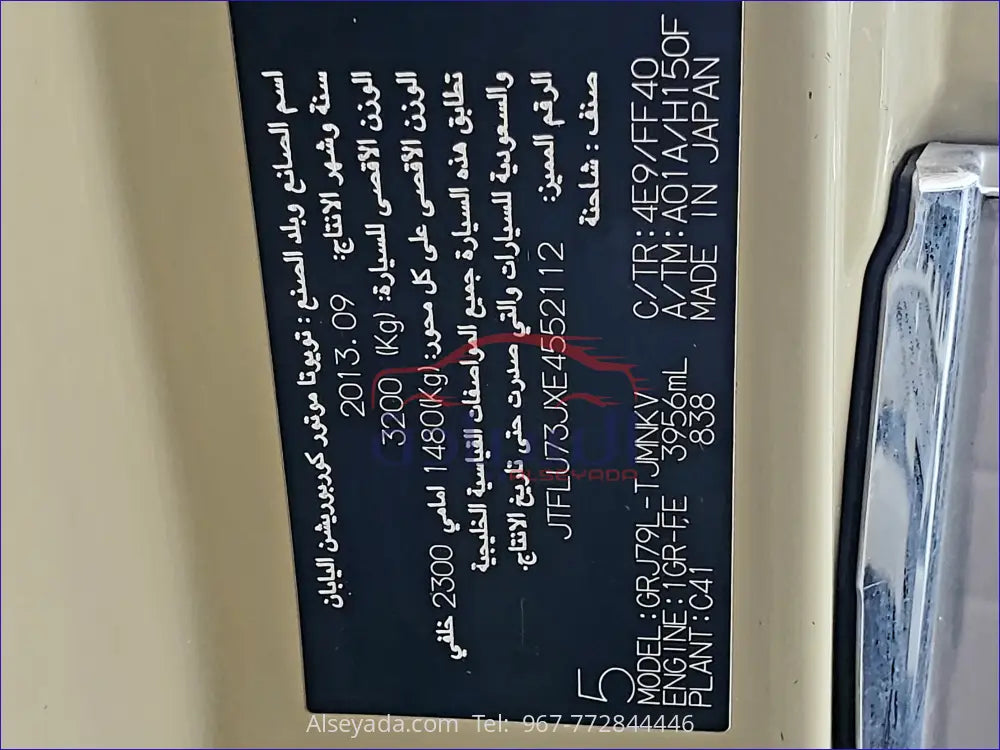 اسم الصانع وبلد الصنع : تويوتا موتور كوربوريشن اليابان
سنة وشهر الانتاج: 2013.09
الوزن الأقصى للسيارة: (Kg) 3200
الوزن الأقصى على كل محور: (Kg)1480 امامي 2300 خلفي
تطابق هذه السيارة جميع المواصفات القياسية الخليجية
والسعودية للسيارات والتي صدرت حتى تاريخ الانتاج.
الرقم المميز: JTFLU73JXE4552112
صنف : شاحنة
5
MODEL:GRJ79L-TJMNKV C/TR:4E9/FF40
ENGINE:1GR-FE, 3956mL A/TM:A01A/H150F
PLANT:C41 838 MADE IN JAPAN
ALSEYADA
Alseyada.com Tel: 967-772844446